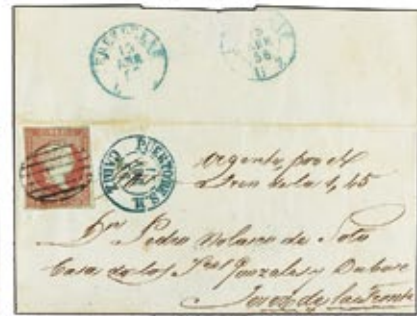 13
ABR
13
ABR
56
PUERTO DE S. M.
CADIZ
Urgente por el
Tren de la 1,45
Dn Pedro Nolasco de Soto
Casa de los Sres Gonzalez y Dubosc
Jerez de la Front